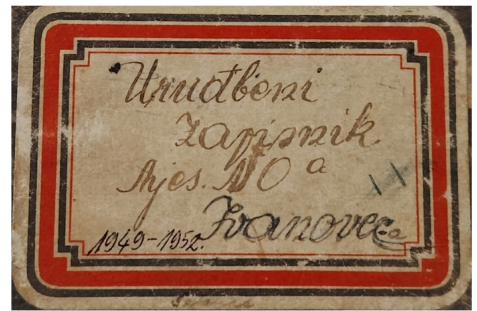 Urudbeni
zapisnik
Mjes. NO a
Ivanovec-a
1949-1952.